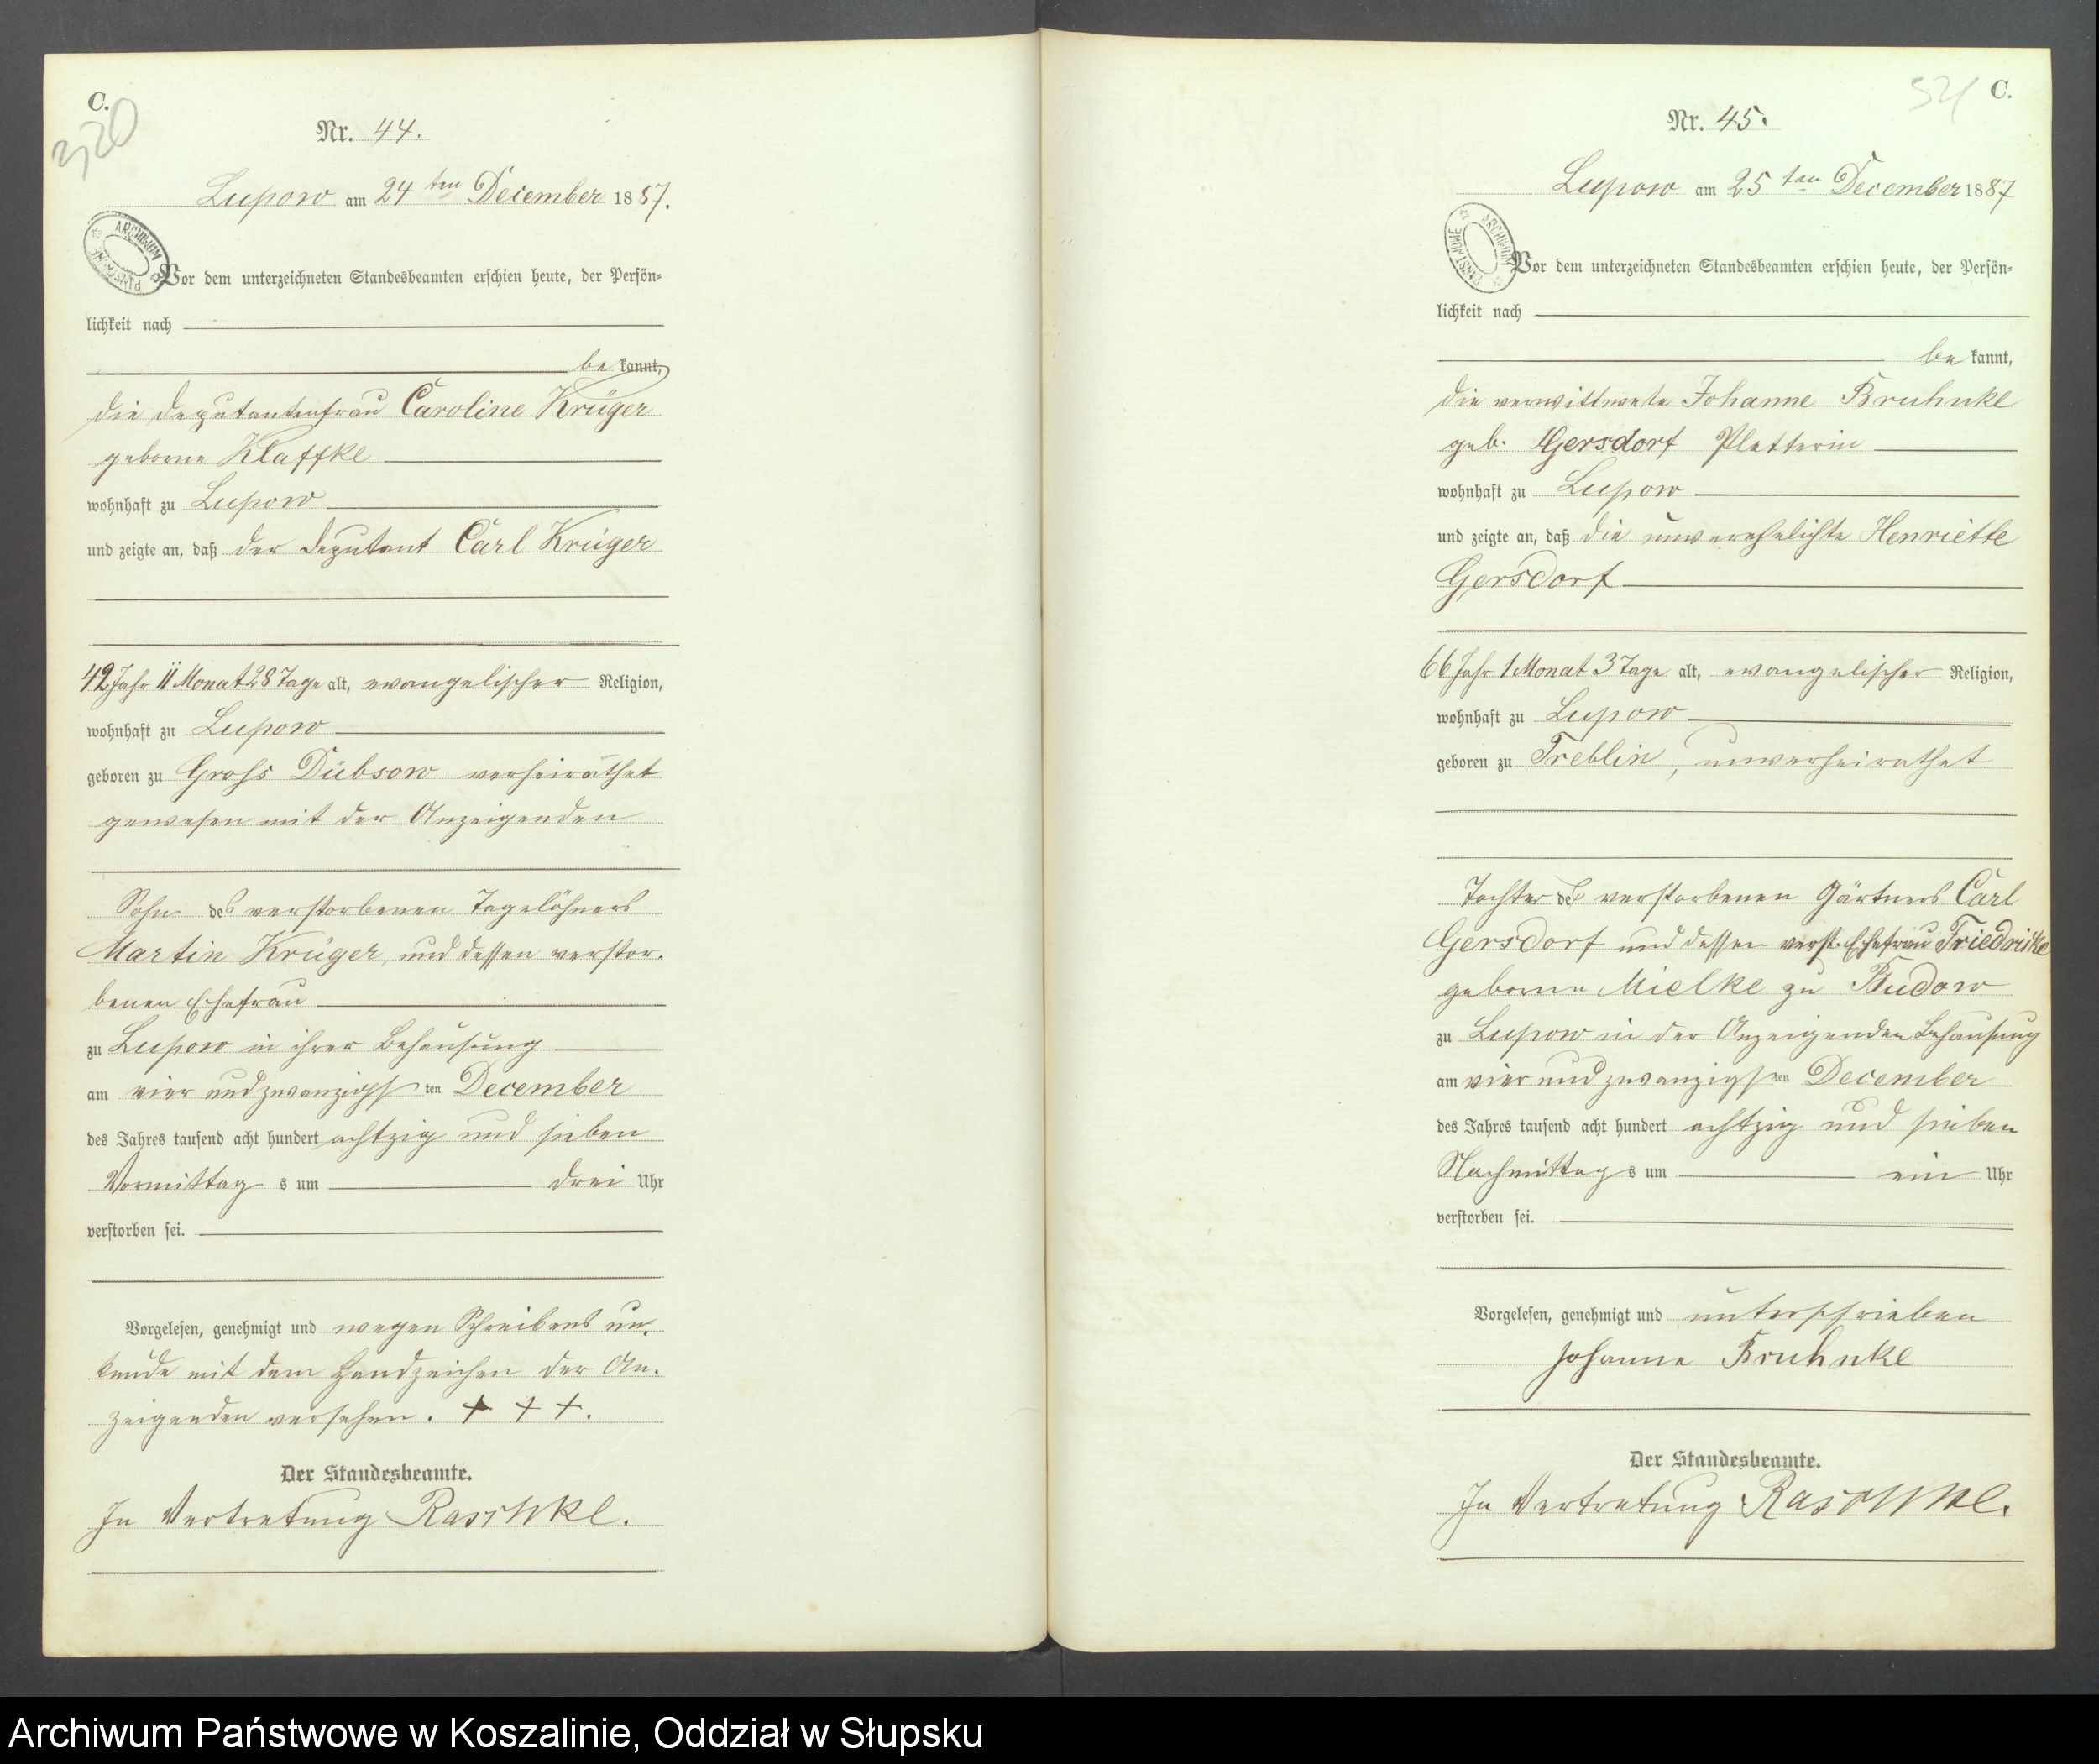 C.
320
Nr. 44.
Lupow am 24 ten December 1887.
ARCHIWUM PAŃSTWOWE
Vor dem unterzeichneten Standesbeamten erschien heute, der Persön-
lichkeit nach
be kannt,
die Deputantenfrau Caroline Krüger
geborne Klaffke
wohnhaft zu Lupow
und zeigte an, daß der Deputant Carl Krüger
42 Jahr 11 Monat 28 Tage alt, evangelischer Religion,
wohnhaft zu Lupow
geboren zu Groß Dübsow verheirathet
gewesen mit der Anzeigenden
Sohn des verstorbenen Tagelöhners
Martin Krüger, und dessen verstor-
benen Ehefrau
zu Lupow in ihrer Behausung
am vier und zwanzigsten December
des Jahres tausend acht hundert achtzig und sieben
Vormittags um drei Uhr
verstorben sei.
Vorgelesen, genehmigt und wegen Schreibens un-
kunde mit dem Handzeichen der An-
zeigenden versehen. + + +.
Der Standesbeamte.
In Vertretung Raschke.
C.
Nr. 45.
Lupow am 25 ten December 1887
ARCHIWUM PAŃSTWOWE
Vor dem unterzeichneten Standesbeamten erschien heute, der Persön-
lichkeit nach
be kannt,
die verwittwete Johanne Bruhnke
geb. Gersdorf Pletterin
wohnhaft zu Lupow
und zeigte an, daß die unverehelichte Henriette
Gersdorf
66 Jahr 1 Monat 3 Tage alt, evangelischer Religion,
wohnhaft zu Lupow
geboren zu Treblin, unverheirathet
Tochter des verstorbenen Gärtners Carl
Gersdorf und dessen verst. Ehefrau Friedrike
geborne Mielke zu Budow
zu Lupow in der Anzeigenden Behausung
am vier und zwanzigsten December
des Jahres tausend acht hundert achtzig und sieben
Nachmittags um ein Uhr
verstorben sei.
Vorgelesen, genehmigt und unterschrieben
Johanne Bruhnke
Der Standesbeamte.
In Vertretung Raschke.
Archiwum Państwowe w Koszalinie, Oddział w Słupsku